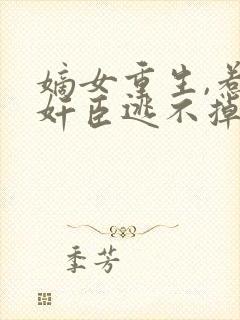 嫡女重生,惹
奸臣逃不掉
季芳